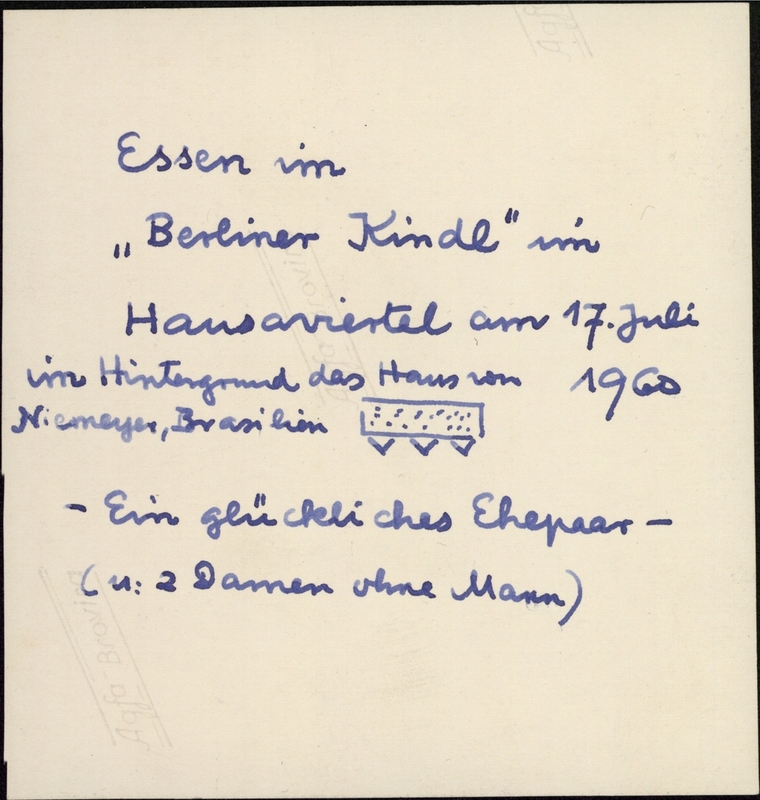 Agfa-Brovira
Essen im
„Berliner Kindl" im
Hansaviertel am 17. Juli
im Hintergrund das Haus von 1960
Niemeyer, Brasilien
- Ein glückliches Ehepaar -
(u: 2 Damen ohne Mann)
Agfa-Brovira